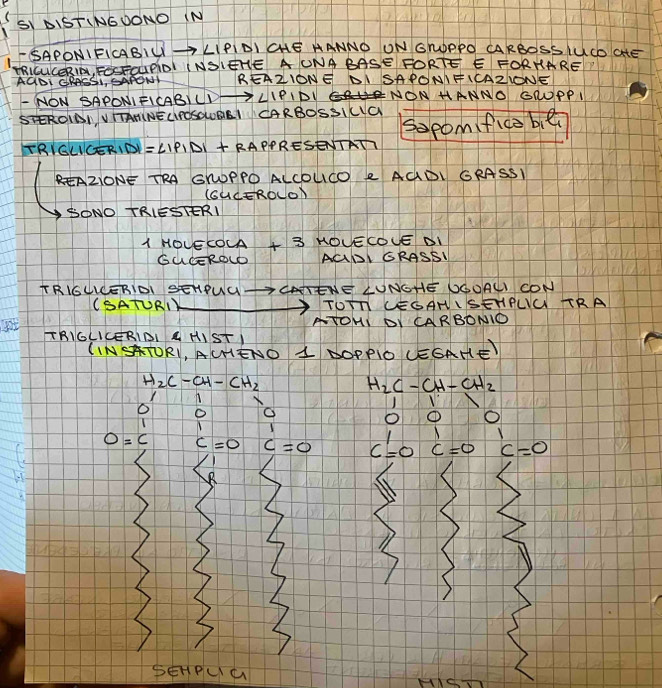 SI DISTINGUONO IN
- SAPONIFICABILI → LIPIDI CHE HANNO UN GRUPPO CARBOSSILICO CHE
TRIGLICERIDI, FOSFOLIPIDI INSIEME A UNA BASE FORTE E FORMARE
ACIDI GRASSI, SAPONI REAZIONE DI SAPONIFICAZIONE
- NON SAPONIFICABILI → LIPIDI GRUP NON HANNO GRUPPI
STEROIDI, VITAMINE LIPOSOLUBILI CARBOSSILICI
saponificabili
TRIGLICERIDI = LIPIDI + RAPPRESENTATI
REAZIONE TRA GRUPPO ALCOLICO e ACIDI GRASSI
(GLICEROLO)
→ SONO TRIESTERI
1 MOLECOLA + 3 MOLECOLE DI
GLICEROLO ACIDI GRASSI
TRIGLICERIDI SEMPLICI → CATENE LUNGHE UGUALI CON
(SATURI) → TUTTI LEGAMI SEMPLICI TRA
ATOMI DI CARBONIO
TRIGLICERIDI MISTI
(INSATURI, ALMENO 1 DOPPIO LEGAME)
H2C - CH - CH2 H2C - CH - CH2
O O O O O O
O = C C = O C = O C = O C = O C = O
R
SEMPLICI MISTI